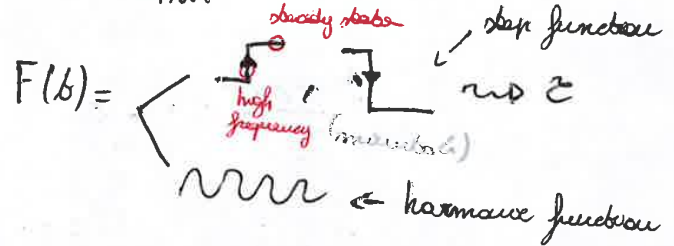 steady state
step function
F(t) =
high
frequency
~> τ
← harmonic function